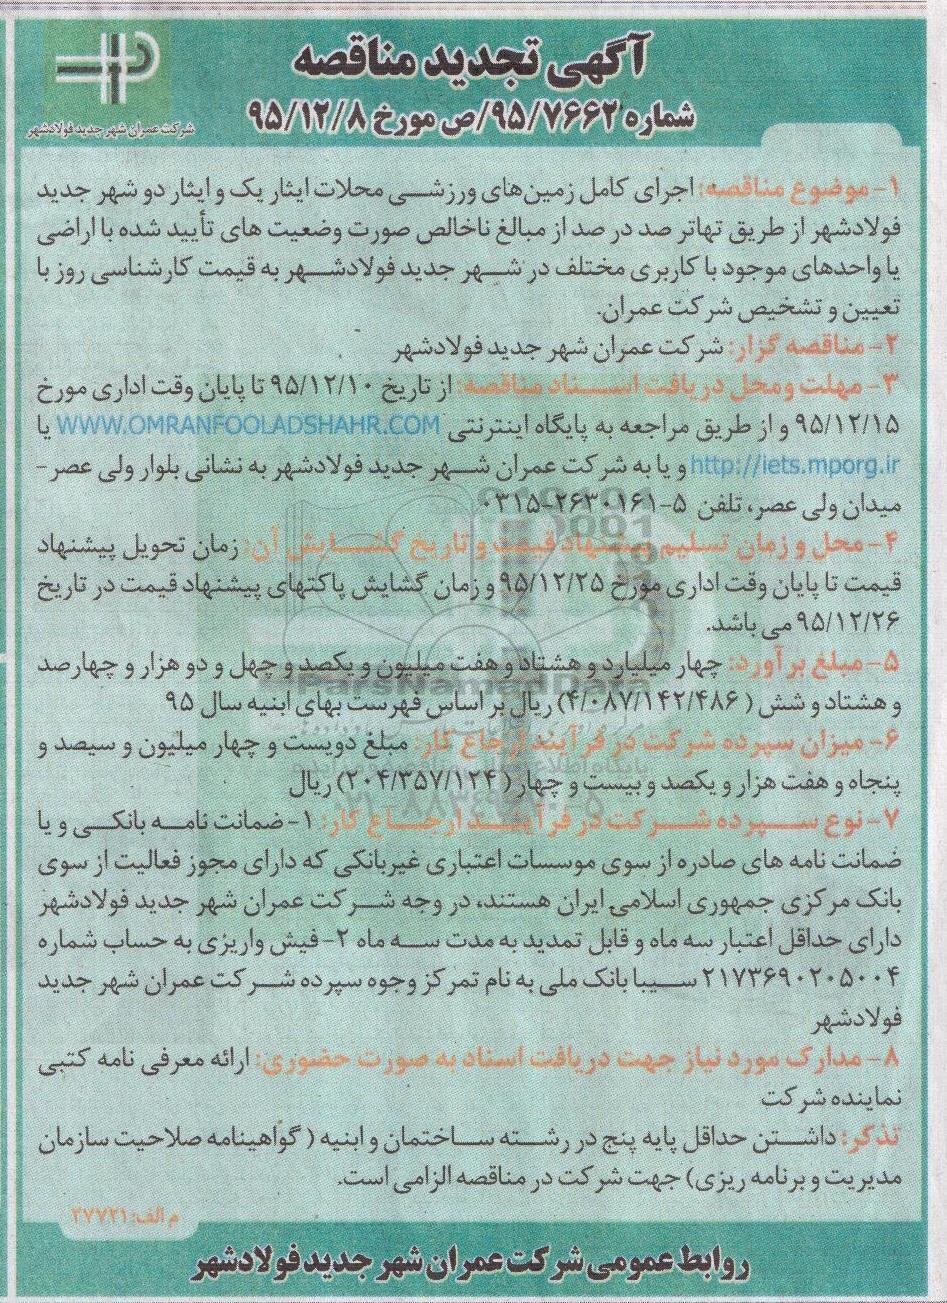 آگهی تجدید مناقصه
شماره ۹۵/۷۶۶۲/ص مورخ ۹۵/۱۲/۸
شرکت عمران شهر جدید فولادشهر
۱- موضوع مناقصه: اجرای کامل زمین‌های ورزشی محلات ایثار یک و ایثار دو شهر جدید
فولادشهر از طریق تهاتر صد در صد از مبالغ ناخالص صورت وضعیت های تأیید شده با اراضی
یا واحدهای موجود با کاربری مختلف در شهر جدید فولادشهر به قیمت کارشناسی روز با
تعیین و تشخیص شرکت عمران.
۲- مناقصه گزار: شرکت عمران شهر جدید فولادشهر
۳- مهلت ومحل دریافت اسناد مناقصه: از تاریخ ۹۵/۱۲/۱۰ تا پایان وقت اداری مورخ
۹۵/۱۲/۱۵ و از طریق مراجعه به پایگاه اینترنتی WWW.OMRANFOOLADSHAHR.COM یا
http://iets.mporg.ir و یا به شرکت عمران شهر جدید فولادشهر به نشانی بلوار ولی عصر -
میدان ولی عصر، تلفن ۵-۲۶۳۰۱۶۱-۰۳۱۵
۴- محل و زمان تسلیم پیشنهاد قیمت و تاریخ گشایش آن: زمان تحویل پیشنهاد
قیمت تا پایان وقت اداری مورخ ۹۵/۱۲/۲۵ و زمان گشایش پاکتهای پیشنهاد قیمت در تاریخ
۹۵/۱۲/۲۶ می باشد.
۵- مبلغ برآورد: چهار میلیارد و هشتاد و هفت میلیون و یکصد و چهل و دو هزار و چهارصد
و هشتاد و شش ( ۴/۰۸۷/۱۴۲/۴۸۶) ریال بر اساس فهرست بهای ابنیه سال ۹۵
۶- میزان سپرده شرکت در فرآیند ارجاع کار: مبلغ دویست و چهار میلیون و سیصد و
پنجاه و هفت هزار و یکصد و بیست و چهار ( ۲۰۴/۳۵۷/۱۲۴) ریال
۷- نوع سپرده شرکت در فرآیند ارجاع کار: ۱- ضمانت نامه بانکی و یا
ضمانت نامه های صادره از سوی موسسات اعتباری غیربانکی که دارای مجوز فعالیت از سوی
بانک مرکزی جمهوری اسلامی ایران هستند، در وجه شرکت عمران شهر جدید فولادشهر
دارای حداقل اعتبار سه ماه و قابل تمدید به مدت سه ماه ۲- فیش واریزی به حساب شماره
۲۱۷۳۶۹۰۲۰۵۰۰۴ سیبا بانک ملی به نام تمرکز وجوه سپرده شرکت عمران شهر جدید
فولادشهر
۸- مدارک مورد نیاز جهت دریافت اسناد به صورت حضوری: ارائه معرفی نامه کتبی
نماینده شرکت
تذکر: داشتن حداقل پایه پنج در رشته ساختمان و ابنیه ( گواهینامه صلاحیت سازمان
مدیریت و برنامه ریزی) جهت شرکت در مناقصه الزامی است.
م الف: ۳۷۷۲۱
روابط عمومی شرکت عمران شهر جدید فولادشهر